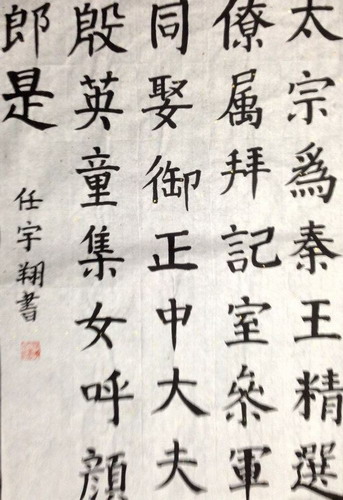 太宗爲秦王精選
僚属拜記室叅軍
同娶御正中大夫
殷英童集女呼顔
郎是
任宇翔書